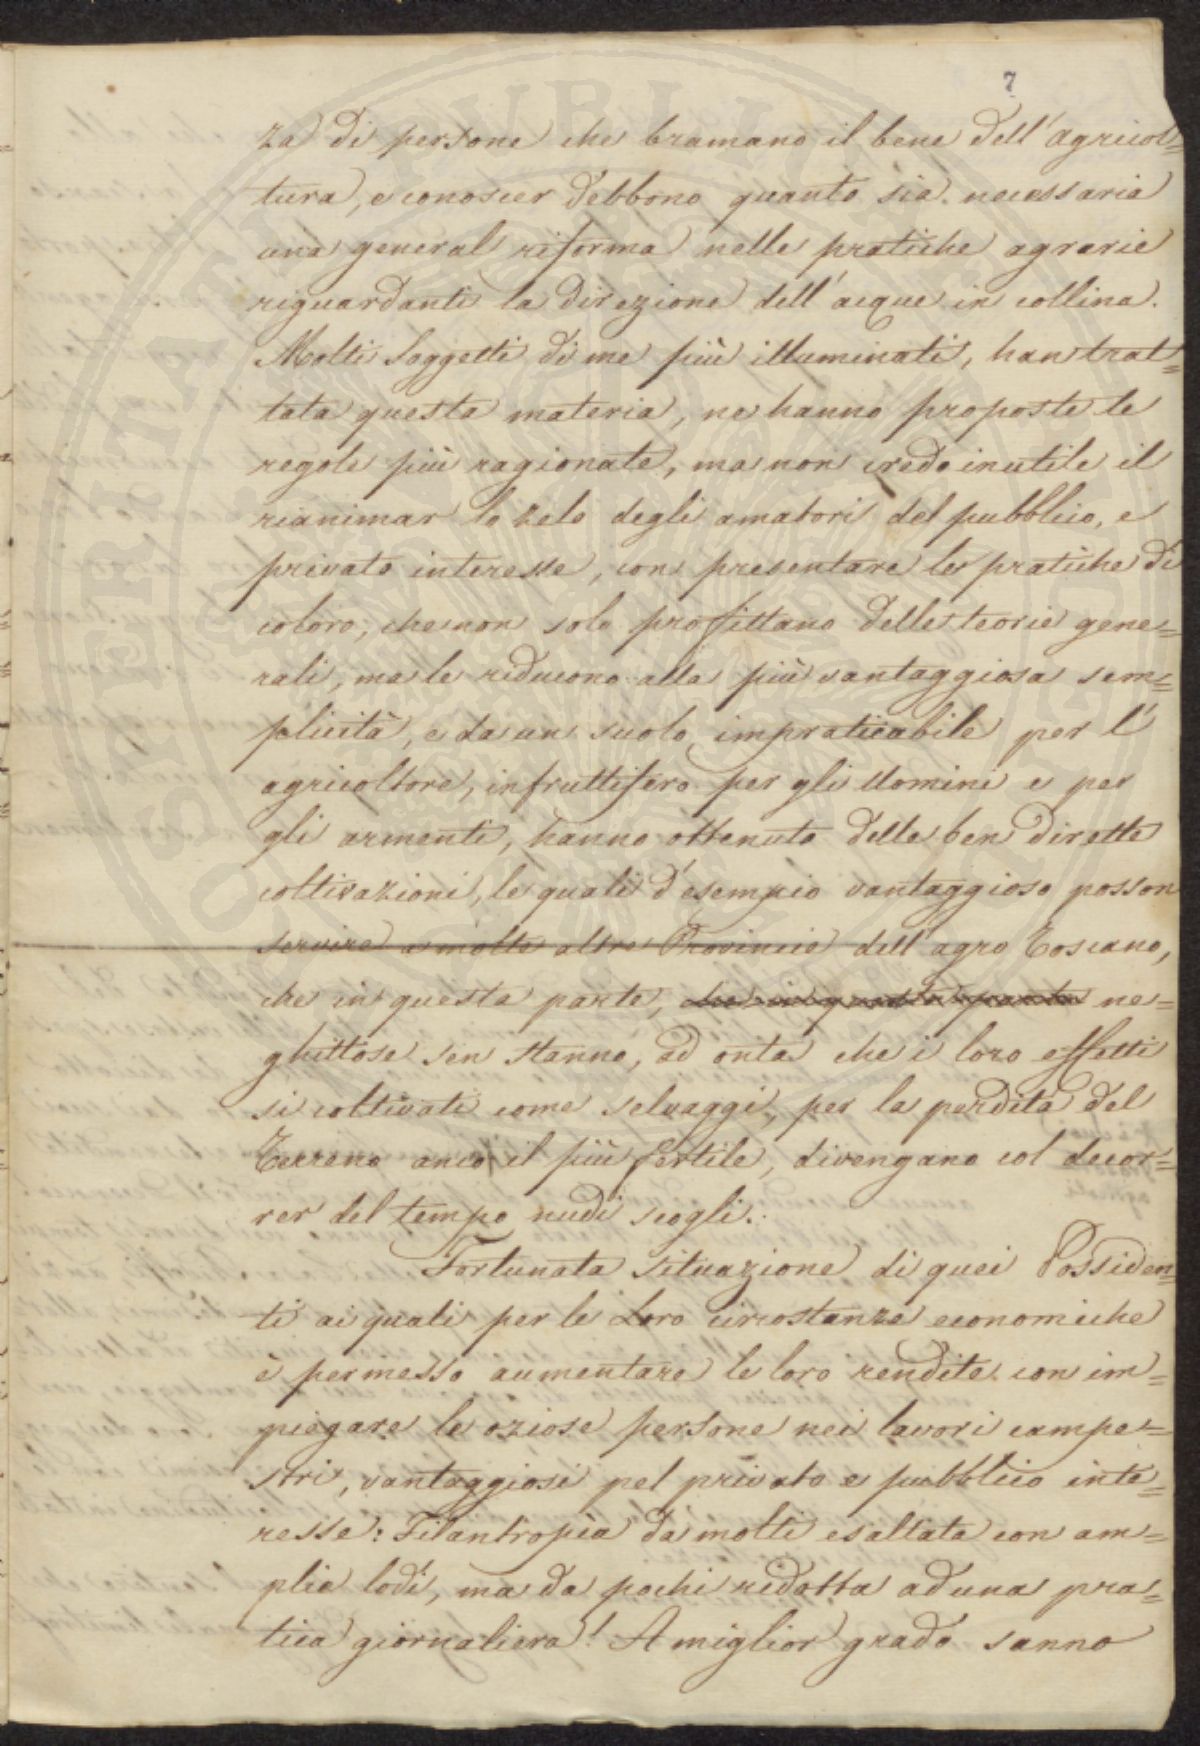 7
za di persone che bramano il bene dell'agricol=
tura, e conoscer debbono quanto sia necessaria
una general riforma nelle pratiche agrarie
riguardanti la direzione dell'acque in collina.
Molti Soggetti di me più illuminati, han trat=
tata questa materia, ne hanno proposte le
regole più ragionate, ma non credo inutile il
rianimar lo zelo degli amatori del pubblico, e
privato interesse, con presentare le pratiche di
coloro, che non solo profittano delle teorie gene=
rali, ma le riducono alla più vantaggiosa sem=
plicità, e da un suolo impraticabile per l'
agricoltore, infruttifero per gli Uomini e per
gli armenti, hanno ottenuto delle ben dirette
coltivazioni, le quali d'esempio vantaggioso posson
servire a molte altre Provincie dell'agro Toscano,
che in questa parte, che in questa parte ne=
ghittose sen stanno, ad onta che i loro effetti
si coltivati come selvaggi, per la perdita del
Terreno anco il più fertile, divengano col decor=
rer del tempo nudi scogli.
Fortunata situazione di quei Possiden=
ti ai quali per le Loro circostanze economiche
è permesso aumentare le loro rendite con im=
piegare le oziose persone nei lavori campe=
stri, vantaggiosi pel privato e pubblico inte=
resse: Filantropia da molti esaltata con am=
plie lodi, ma da pochi ridotta ad una pra=
tica giornaliera! A miglior grado sanno